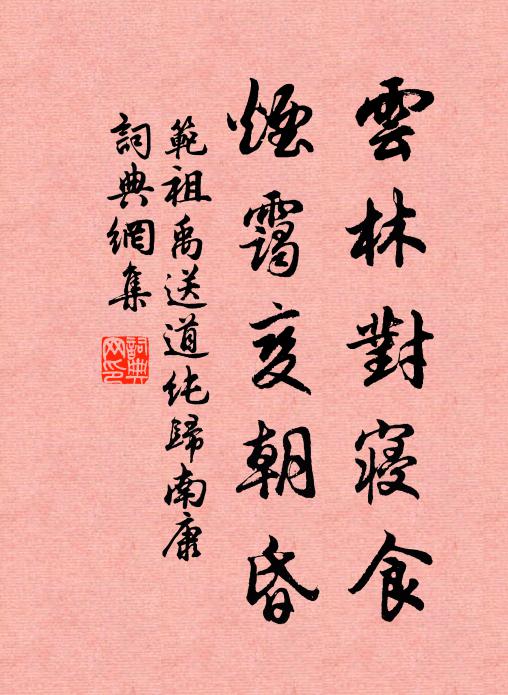 雲林對寢食
煙靄変朝昏
範祖禹送道純歸南康
詞典網集
詞典網印